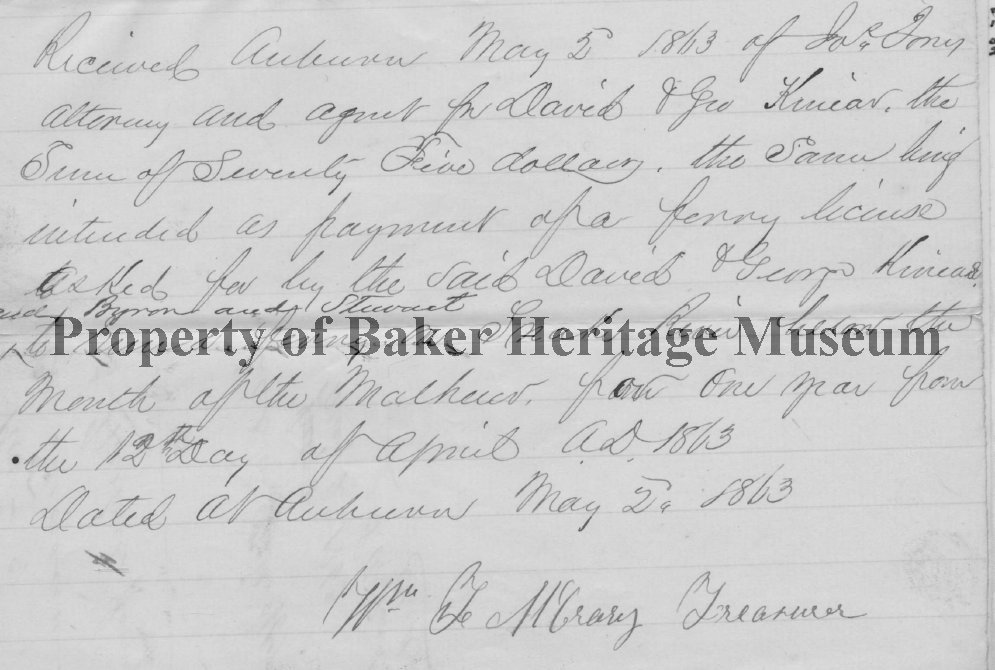 Received Auburn May 5 1863 of Jos.
attorney and agent for David & Geo Kinear. the
Sum of Seventy Five dollars. the Same being
intended as payment of a ferry license
asked for by the said David & George Kinear
and Byron and Stewart
to run a ferry on Snake River below the
Property of Baker Heritage Museum
Month of the Malheur. for one year from
the 12th Day of April A.D. 1863
Dated at Auburn May 5. 1863
Wm F McCrary Treasurer